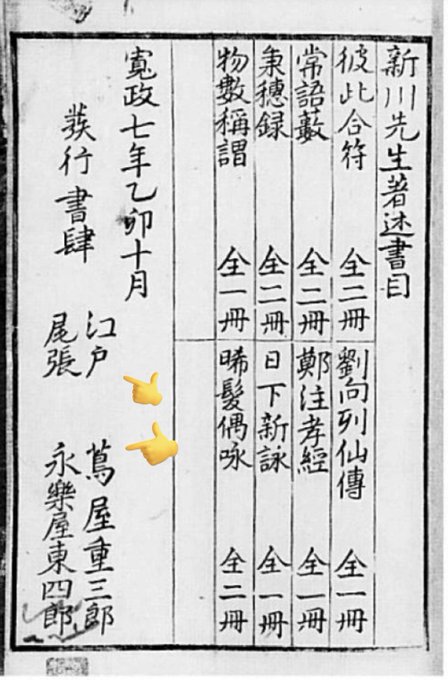 新川先生著述書目
彼此合符 全二冊
劉向列仙傳 全一冊
常語藪 全二冊
鄭注孝經 全一冊
秉穗録 全二冊
日下新詠 全一冊
物數稱謂 全一冊
晞髮偶咏 全二冊
寛政七年乙卯十月
發行書肆
江戸 蔦屋重三郎
尾張 永樂屋東四郎